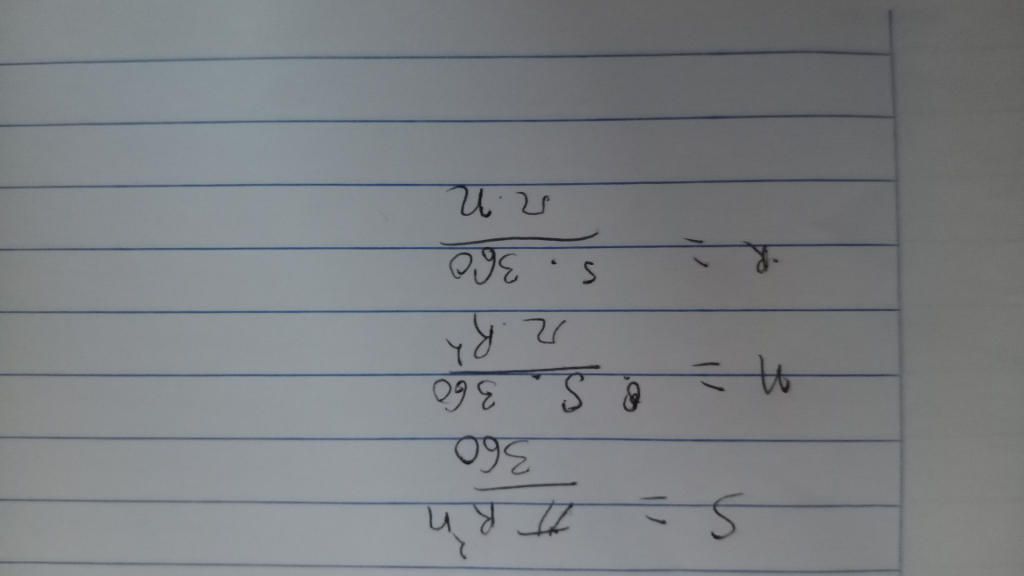 S = π R²n / 360
n = S · 360 / π · R²
R = S · 360 / π · n